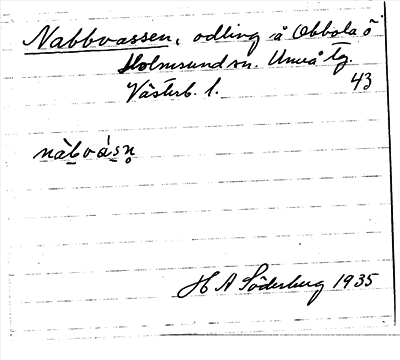 Nabbvassen, odling å Obbola ö
Holmsund sn. Umeå tg.
Västerb. l. 43
nàbvásn̥
H A Söderberg 1935